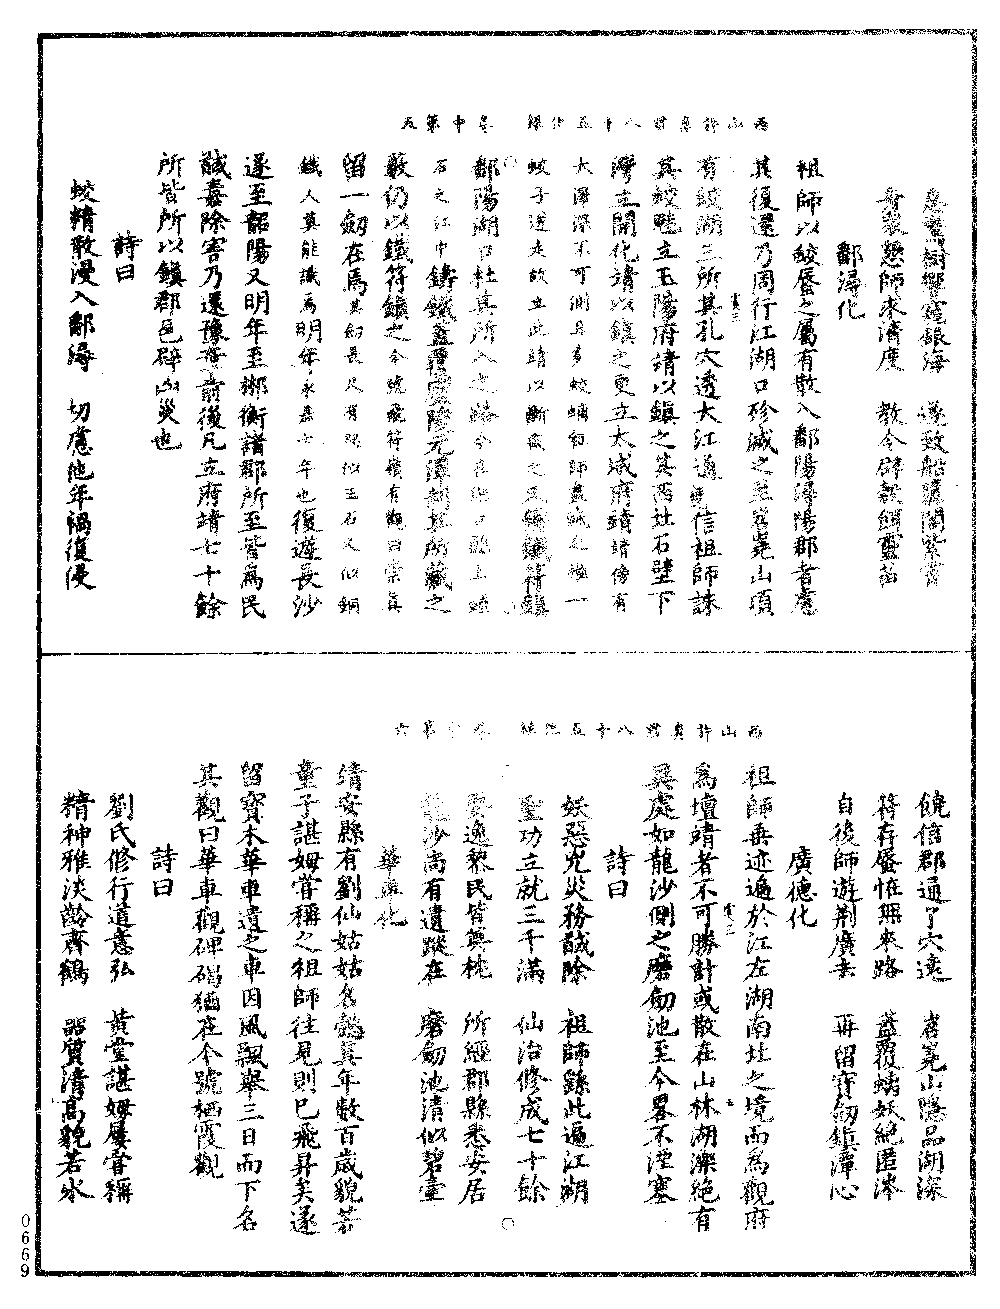 西山許真君八十五化錄 卷中第五
息鷰樹響寃銀海 遂致船膠閣紫霄
脊裂懇師來濟度 教令辟穀餌靈苗
鄱潯化
祖師以蛟蜃之屬有散入鄱陽潯陽郡者慮
其復還乃周行江湖口殄滅之至峇嶤山頂
有蛟湖三所其孔穴透大江通饒信祖師誅
其蛟魅立玉陽府靖以鎮之其西社石壁下
灣立開化靖以鎮之更立大城府靖靖傍有
大潭深不可測且多蛟螭紿師盡誅之惟一
蛟子逃走故立此靖以斷後之
鄱陽湖口杜其所入之路今在湖口縣上
石之江中鑄鐵蓋覆廬陵元潭制其所藏之
藪仍以鐵符鎮之今號飛符嶺有觀曰崇真
留一劒在焉其劒長尺有咫似玉石又似銅
鐵人莫能識焉明年永嘉六年也復遊長沙
遂至韶陽又明年至郴衡諸郡所至皆為民
馘毒除害乃還豫章前後凡立府靖七十餘
所皆所以鎮郡邑辟凶災也
詩曰
蛟精散漫入鄱潯 切慮他年禍復侵
西山許真君八十五化錄 卷中第六
饒信郡通了穴遠 峇嶤山隱品湖深
符存蜃怪無來路 蓋覆螭妖絕匿涔
自後師遊荆廣去 再留寶劒鎮潭心
廣德化
祖師垂迹遍於江左湖南北之境而為觀府
為壇靖者不可勝計或散在山林湖濼絕有
異處如龍沙側之磨劒池至今畧不湮塞
詩曰
妖惡兇災務馘除 祖師繇此遍江湖
聖功立就三千滿 仙治修成七十餘
要逸黎民皆奠枕 所經郡縣悉安居
龍沙尚有遺蹤在 磨劒池清似碧壺
華車化
靖安縣有劉仙姑姑名懿真年數百歲貌若
童子諶姆嘗稱之祖師往見則已飛昇矣遂
留寶木華車遺之車因風飄舉三日而下名
其觀曰華車觀碑碣猶在今號栖霞觀
詩曰
劉氏修行道意弘 黃堂諶姆屢嘗稱
精神雅淡齡齊鶴 器質清高貌若氷
0669